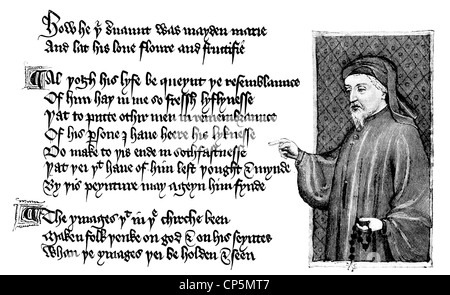 How he yͤ ẜuaunt was mayden marie
And lat his loue floure and fructifie
Al yogh his lyfe be queynt ye resemblaunce
Of him hay in me so fressh lyflynesse
Yat to putte othir men in remembraunce
Of his ꝑsone I haue heere his lyknesse
Do make to yis ende in sothfastnesse
Yat yei yͭ haue of him left yought & mynde
By yis peynture may ageyn him fynde
The ymages yͭ in yͤ chirche been
Maken folk yenke on god & on his seyntes
Whan ye ymages yei be holden & seen
alamy
www.alamy.com - CP5MT7